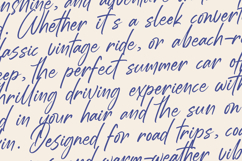 nshine, and adventure of
. Whether it's a sleek convert
lassic vintage ride, or a beach-r
eep, the perfect summer car of
hrilling driving experience with
d in your hair and the sun on
in. Designed for road trips, coa
and warm-weather